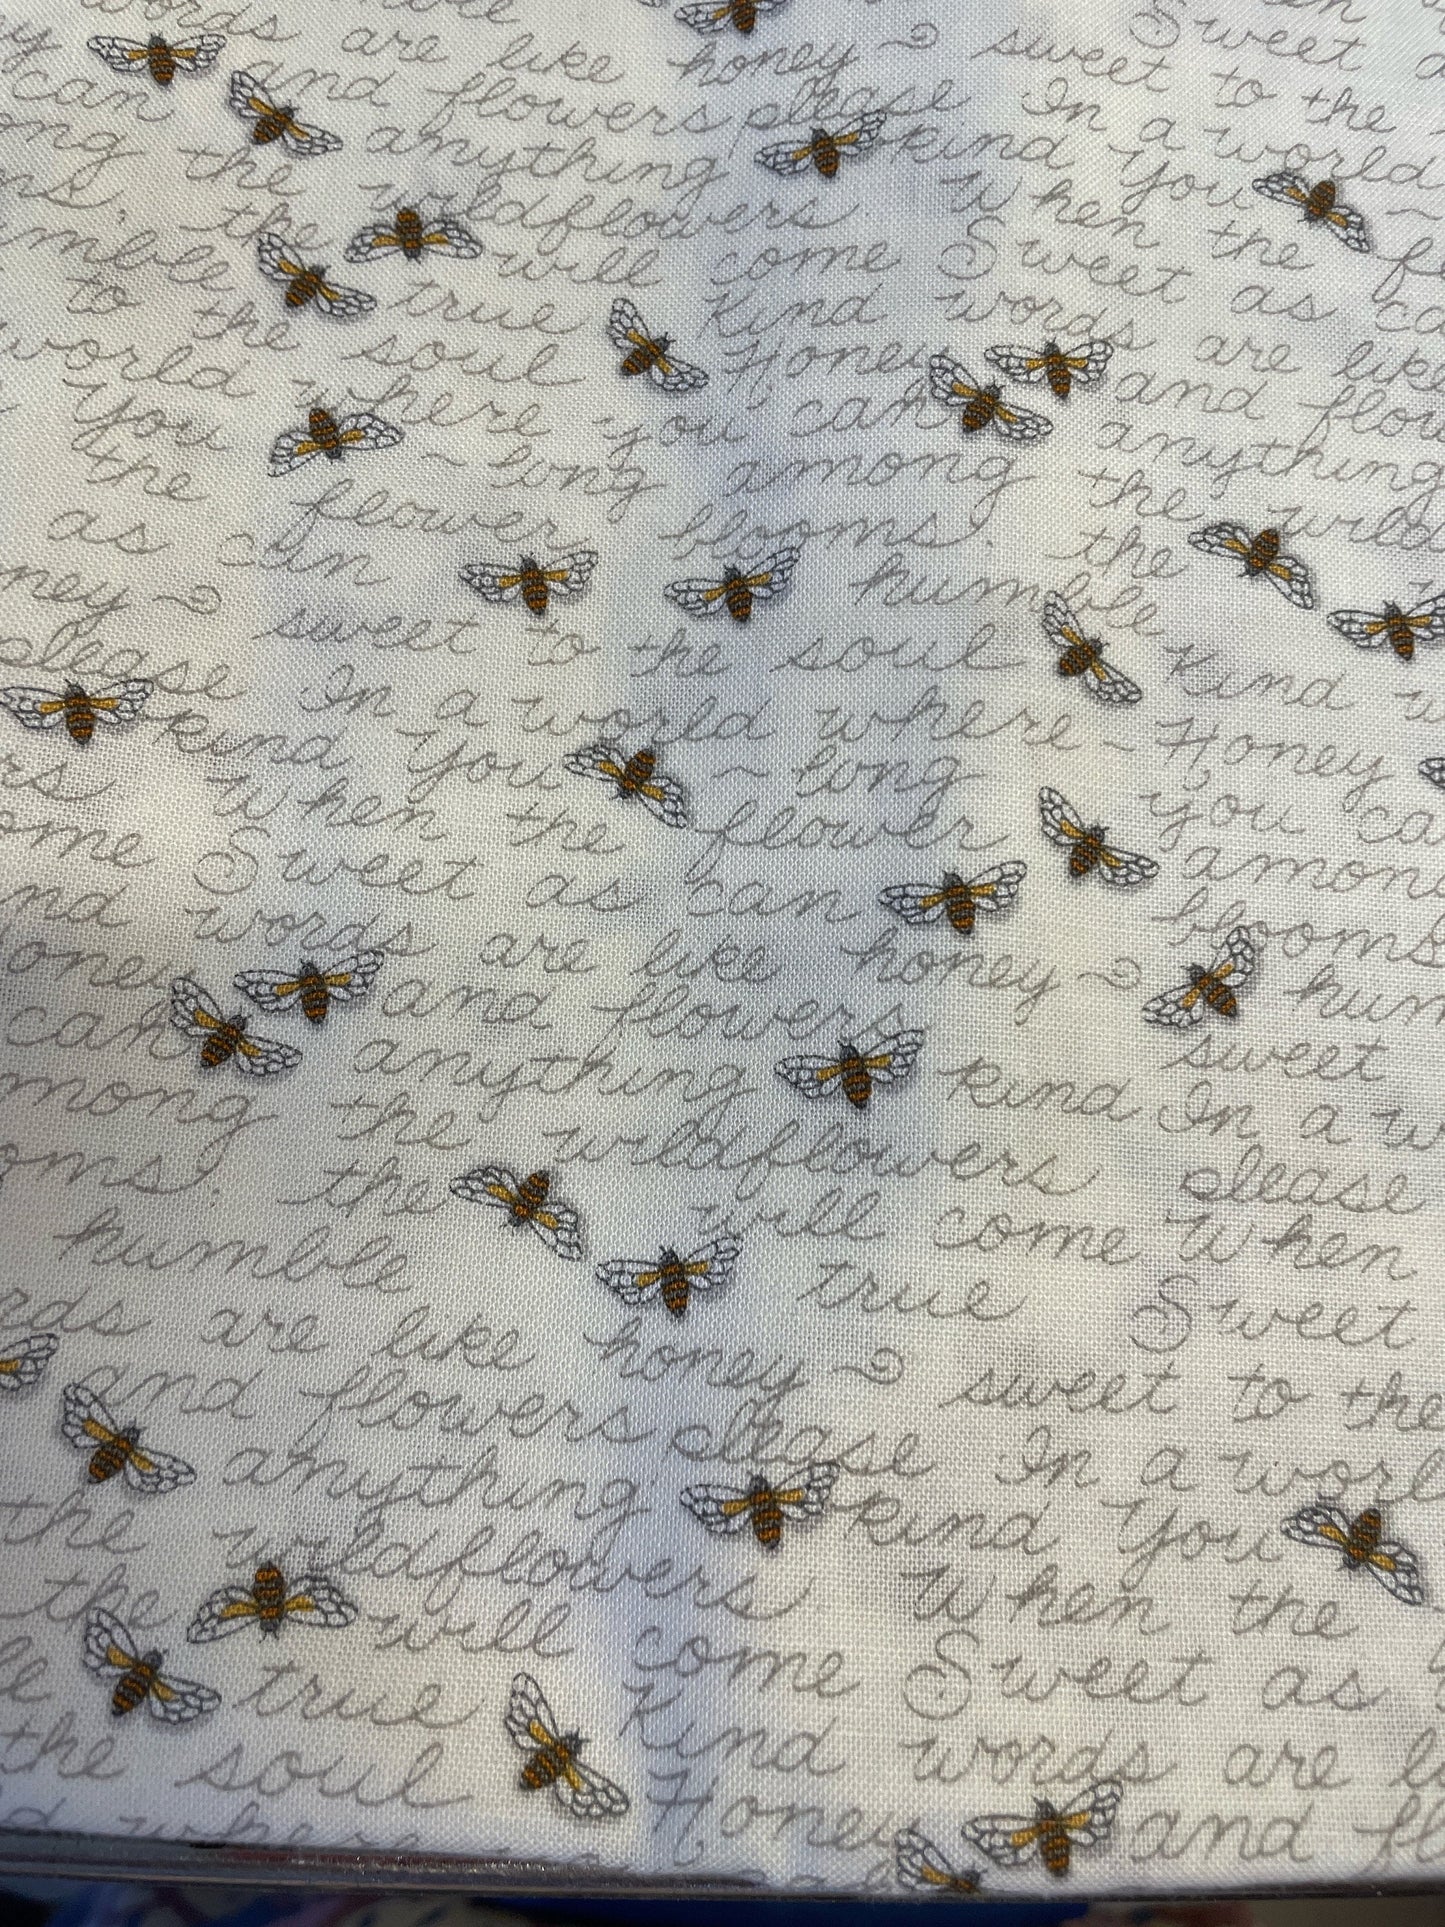 words are like honey sweet to the
can and flowers please In a world
the anything kind You
the wildflowers When the
humble will come Sweet as
to the true Kind words are like
world soul Honey and
You where you can anything
the long among the
as can flower blooms. the
honey sweet to the soul humble Kind
please In a world where Honey
kind You long you
When the flower among
come Sweet as can blooms
words are like honey
and flowers sweet
can anything kind In a
among the wildflowers please
blooms. the will come When
humble true Sweet
words are like honey sweet to the
and flowers please In a world
anything kind You
the wildflowers. When the
the will come Sweet as
true Kind words are
the soul Honey and
where